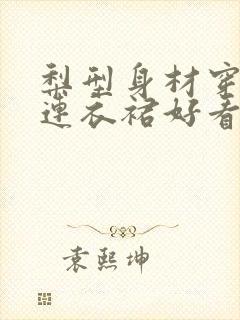 梨型身材穿
连衣裙好看
袁熙坤